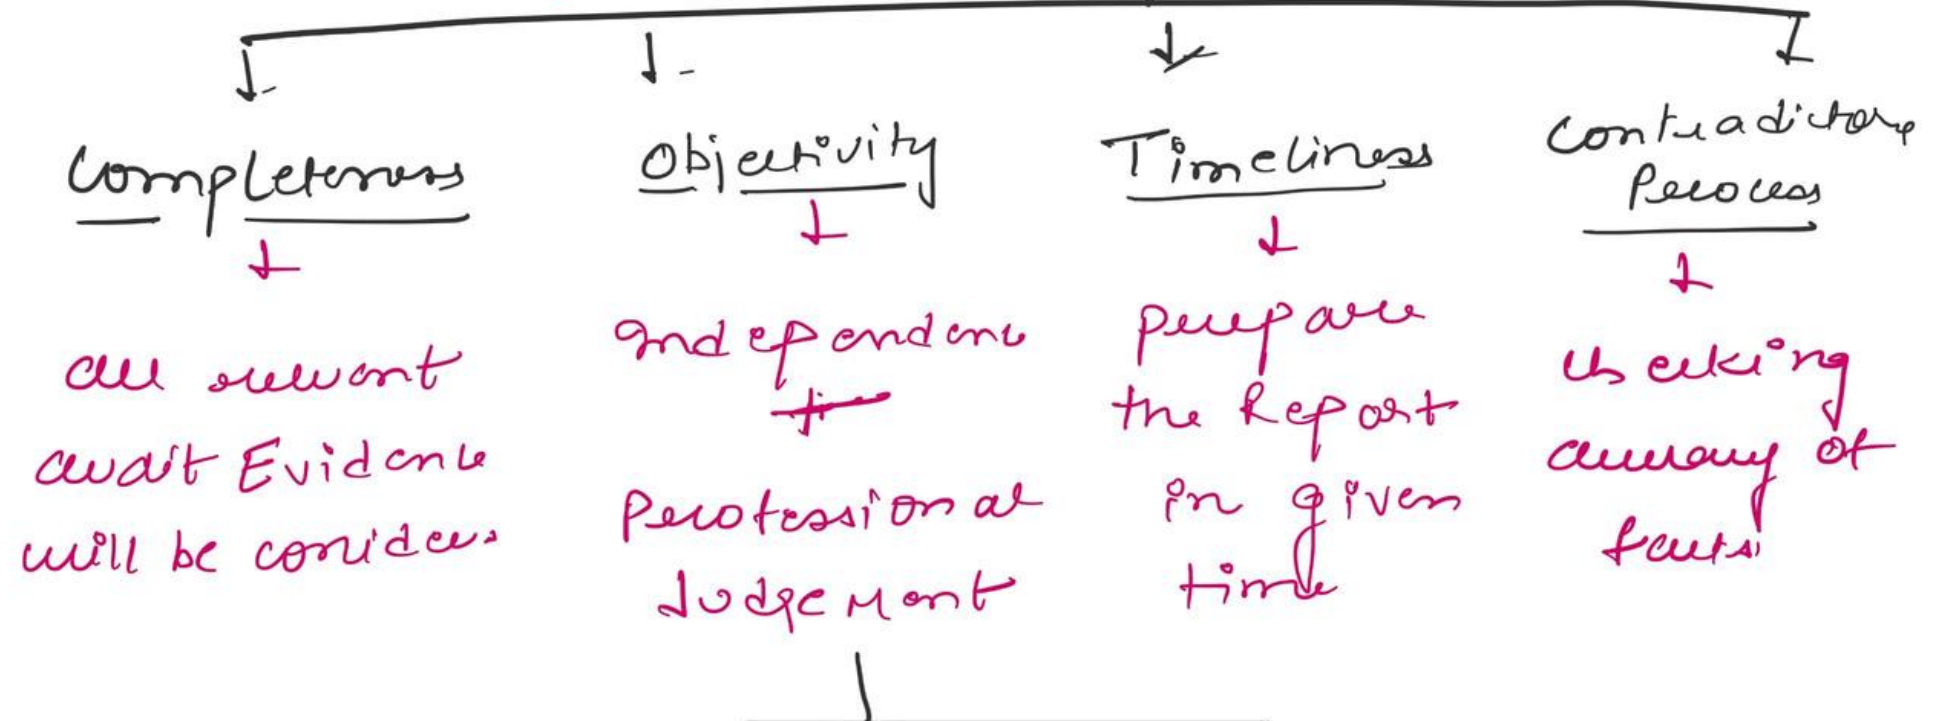 Completeness
all relevant
audit Evidence
will be consider.
Objectivity
Independence
+
Professional
Judgement
Timeliness
prepare
the Report
in given
time
Contradictory
Process
checking
accuracy of
facts